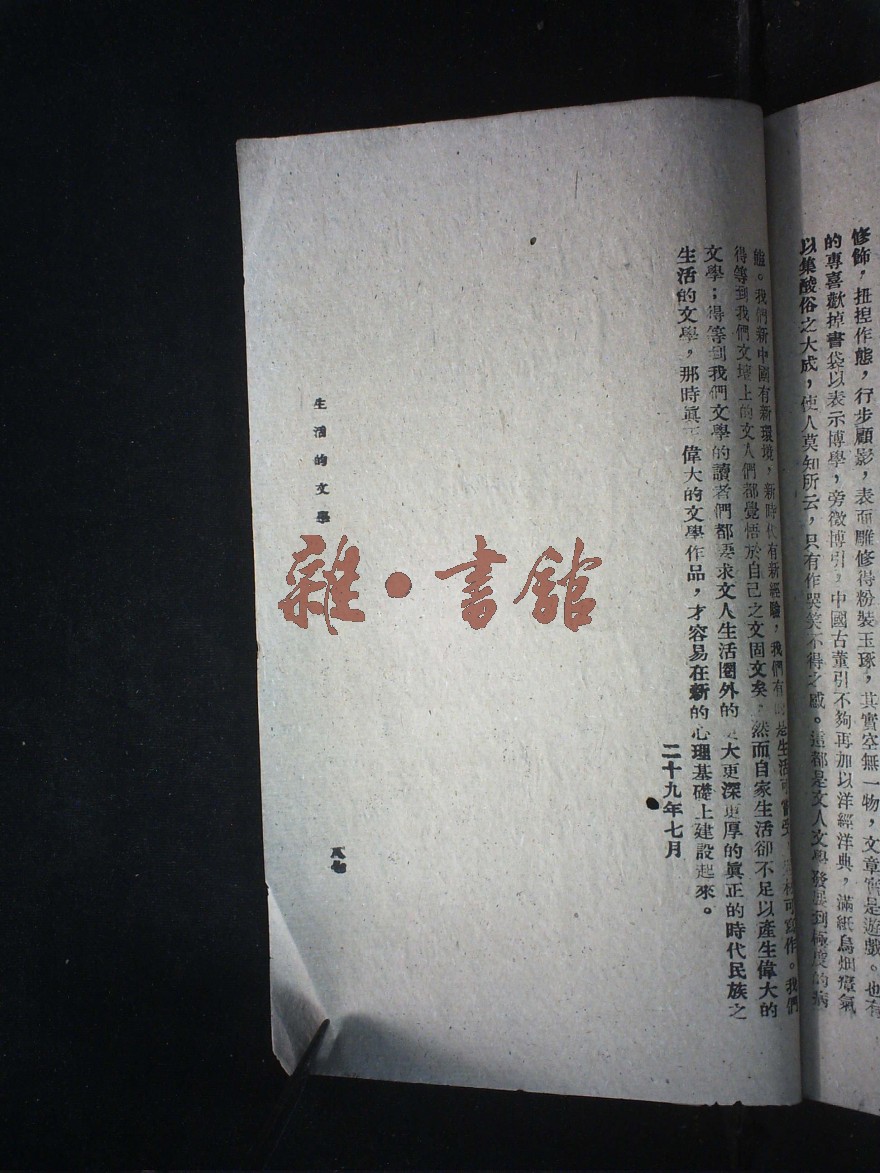 修飾，扭揑作態，行步顧影，表面雕修得粉裝玉琢，其實空無一物，文章實是遊戲。也有
的專喜歡掉書袋以表示博學，旁徵博引，中國古董引不夠再加以洋經洋典，滿紙烏烟瘴氣
以集酸俗之大成，使人莫知所云，只有作哭笑不得之感。這都是文人文學發展到極度的病
態。我們新中國有新環境，新時代有新經驗，我們有的是生活可寫作。我們
得等到我們文壇上的文人們都覺悟於自己之文固文矣，然而自家生活卻不足以產生偉大的
文學；得等到我們文學的讀者們都要求文人生活圈外的更大更深更厚的眞正的時代民族之
生活的文學，那時眞正偉大的文學作品，才容易在新的心理基礎上建設起來。
二十九年七月
生活的文學
八七
雜•書館